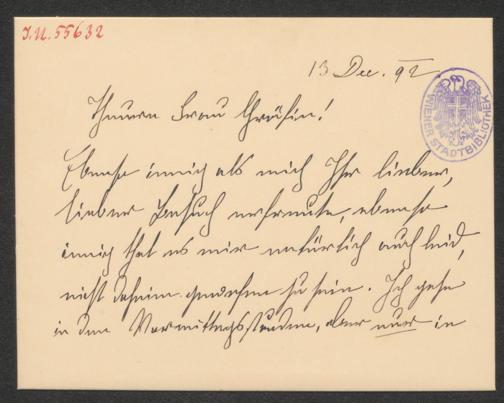 I.N. 55632
13 Dec. 92
WIENER STADTBIBLIOTHEK
Theuere Frau Gräfin!
Ebenso innig als mich Ihr lieber,
lieber Besuch erfreute, ebenso
innig that es mir natürlich auch leid,
nicht daheim gewesen zu sein. Ich gehe
in den Vormittagsstunden, aber nur in